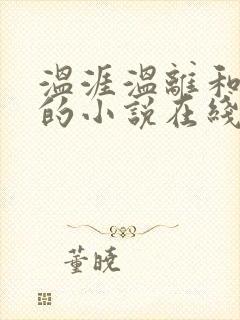 温涯温離和
的小説在綫
董曉